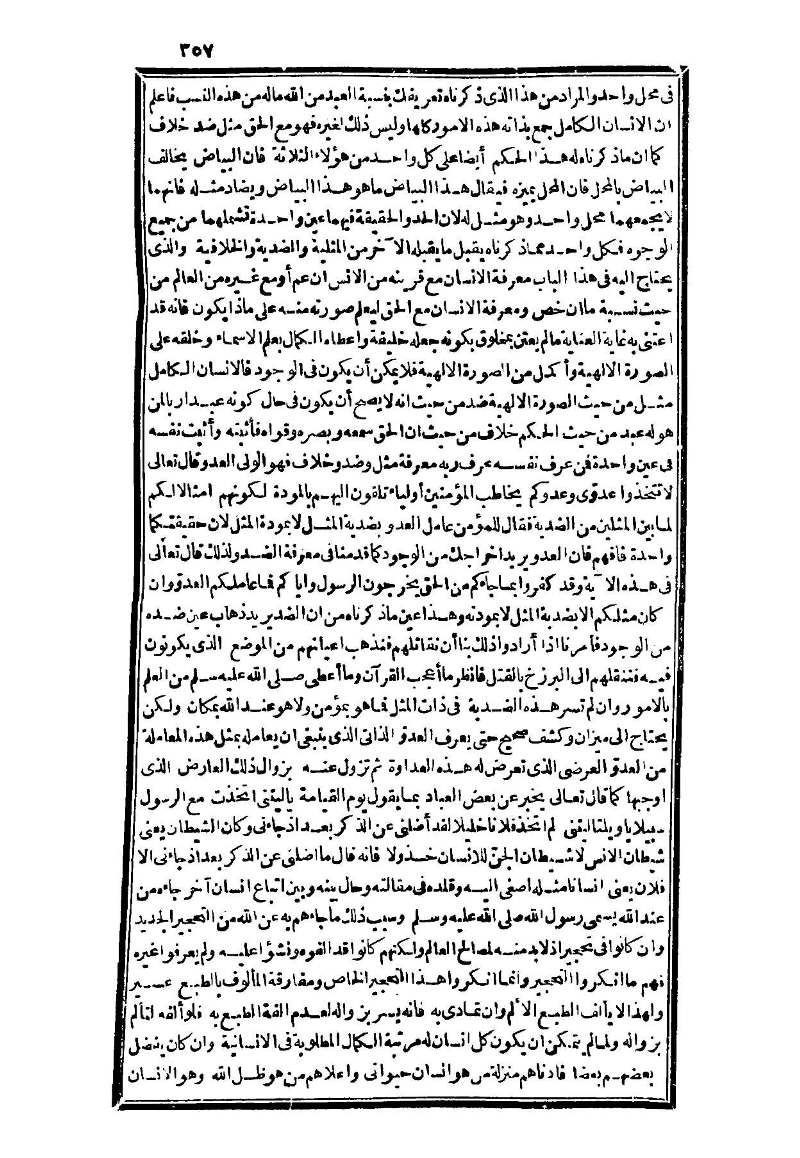 ٣٥٧
فى محل واحد والمراد من هذا الذى ذكرناه تعريفك بنسبة العبد من الله ماله من هذه النسب فاعلم
ان الانسان الكامل جمع بذاته هذه الامور كلها وليس ذلك لغيره فهو مع الحق مثل ضد خلاف
كما ان ما ذكرناه له هذا الحكم أيضا على كل واحد من هؤلاء الثلاثة فان البياض يخالف
البياض بالمحل فان المحل يميزه فيقال هذا البياض ما هو هذا البياض ويضاد مثله فانهما
لا يجمعهما محل واحد وهو مثل له لان الحد والحقيقة فيهما عين واحدة تشملهما من جميع
الوجوه فكل واحد مما ذكرناه يقبل ما يقبله الآخر من المثلية والضدية والخلافية والذى
يحتاج اليه فى هذا الباب معرفة الانسان مع قرينه من الانس ان عم أو مع غيره من العالم من
حيث نسبة ما ان خص ومعرفة الانسان مع الحق ليعلم صورته منه على ماذا يكون فانه قد
اعتنى به غاية العناية ما لم يعتن بمخلوق بكونه جعله خليفة واعطاه الكمال بعلم الاسماء وخلقه على
الصورة الالهية وأكمل من الصورة الالهية فلا يمكن أن يكون فى الوجود فالانسان الكامل
مثل من حيث الصورة الالهية ضد من حيث انه لا يصح أن يكون فى حال كونه عبدا ربا لمن
هو له عبد من حيث الحكم خلاف من حيث ان الحق سمعه وبصره وقواه فأثبته وأثبت نفسه
فى عين واحدة فمن عرف نفسه عرف ربه معرفة مثل وضد وخلاف فهو الولى العدو قال تعالى
لا تتخذوا عدوى وعدوكم يخاطب المؤمنين أولياء تلقون اليهم بالمودة لكونهم امثالا لكم
لما بين المثلين من الضدية فقال للمؤمن عامل العدو بضدية المثل لا بمودة المثل لان حقيقتكما
واحدة فافهم فان العدو يريد اخراجك من الوجود كما قدمنا فى معرفة الضد ولذلك قال تعالى
فى هذه الآية وقد كفروا بما جاءكم من الحق يخرجون الرسول واياكم فما عاملكم العدو وان
كان مثلكم الا بضدية المثل لا بمودته وهذا عين ما ذكرناه من ان الضد يريد ذهاب عين ضده
من الوجود فأمرنا اذا أرادوا ذلك بنا أن نقاتلهم فنذهب اعيانهم من الموضع الذى يكونون
فيه فننقلهم الى البرزخ بالقتل فانظر ما أعجب القرآن وما أعطى صلى الله عليه وسلم من العلم
بالامور وان لم تسر هذه الضدية فى ذات المثل فما هو بمؤمن ولا هو عند الله بمكان ولكن
يحتاج الى ميزان وكشف صحيح حتى يعرف العدو الذاتى الذى ينبغى ان يعامله بمثل هذه المعاملة
من العدو العرضى الذى تعرض له هذه العداوة ثم تزول عنه بزوال ذلك العارض الذى
اوجبها كما قال تعالى يخبر عن بعض العباد بما يقول يوم القيامة ياليتنى اتخذت مع الرسول
سبيلا ياويلتا ليتنى لم اتخذ فلانا خليلا لقد أضلنى عن الذكر بعد اذ جاءنى وكان الشيطان يعنى
شيطان الانس لا شيطان الجن للانسان خذولا فانه قال ما اضلنى عن الذكر بعد اذ جاءنى الا
فلان يعنى انسانا مثله اصغى اليه وقلده فى مقالته وحال بينه وبين اتباع انسان آخر جاءه من
عند الله يسمى رسول الله صلى الله عليه وسلم وسبب ذلك ما جاءهم به عن الله من التحجير الجديد
وان كانوا فى تحجير اذ لا بد منه لمصالح العالم ولكنهم كانوا قد الفوه ونشؤا عليه ولم يعرفوا غيره
فهم ما انكروا التحجير وانما انكروا هذا التحجير الخاص ومفارقة المألوف بالطبع عسير
ولهذا لا يألف الطبع الألم وان تمادى به فانه يسر بزواله لعدم الفة الطبع به فلو ألفه لتألم
بزواله ولما لم يتمكن ان يكون كل انسان له مرتبة الكمال المطلوبة فى الانسانية وان كان يفضل
بعضهم بعضا فادناهم منزلة من هو انسان حيوانى واعلاهم من هو ظل الله وهو الانسان